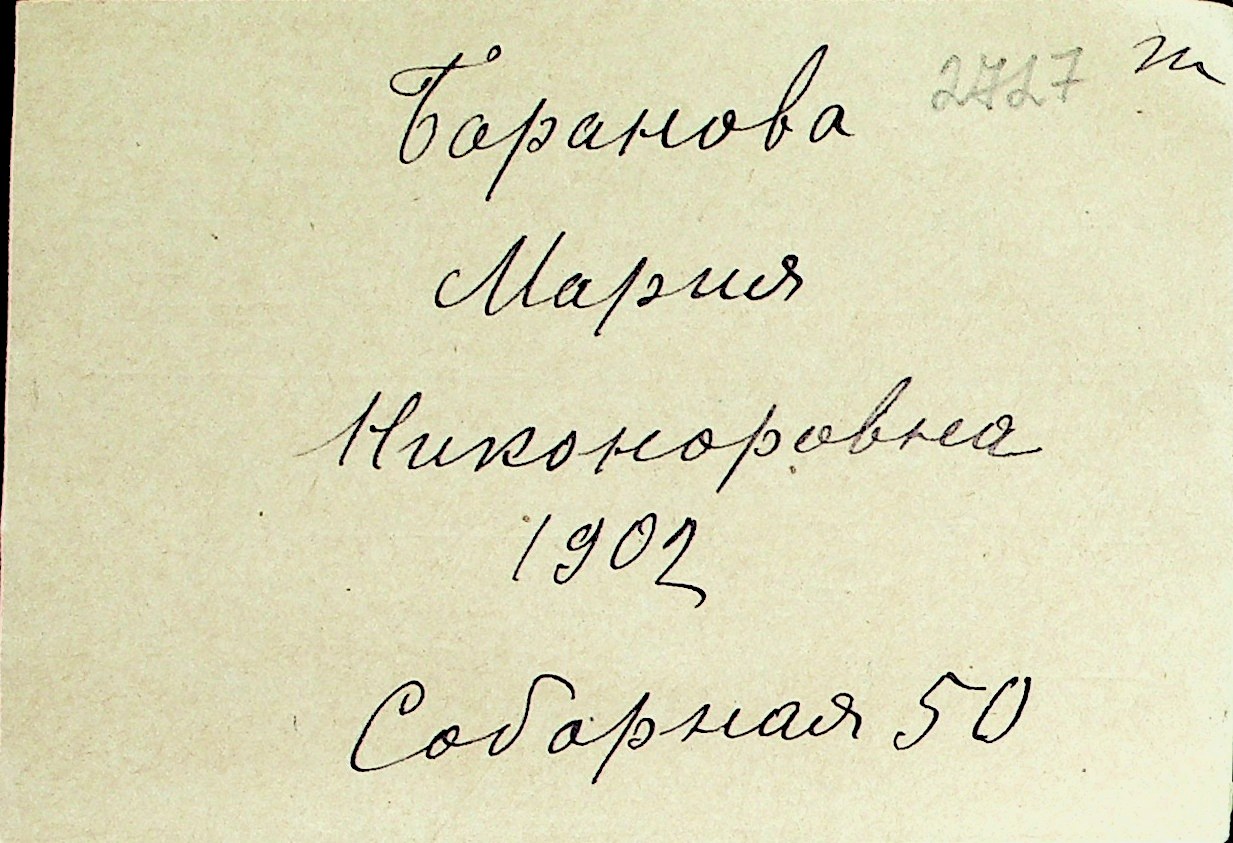 Баранова 2727 т
Мария
Никоноровна
1902
Соборная 50